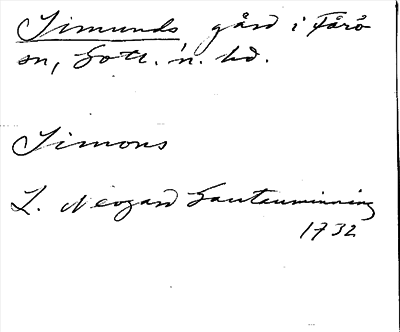 Simunds, gård i Fårö
sn, Gotl. n. hd.
Simons
L. Neogard Gautauminning
1732